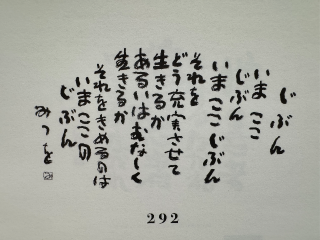 じぶん
いま ここ
じぶん
いま ここ じぶん
それを
どう充実させて
生きるか
あるいは むなしく
生きるか
それをきめるのは
いま ここの
じぶん
みつを
292